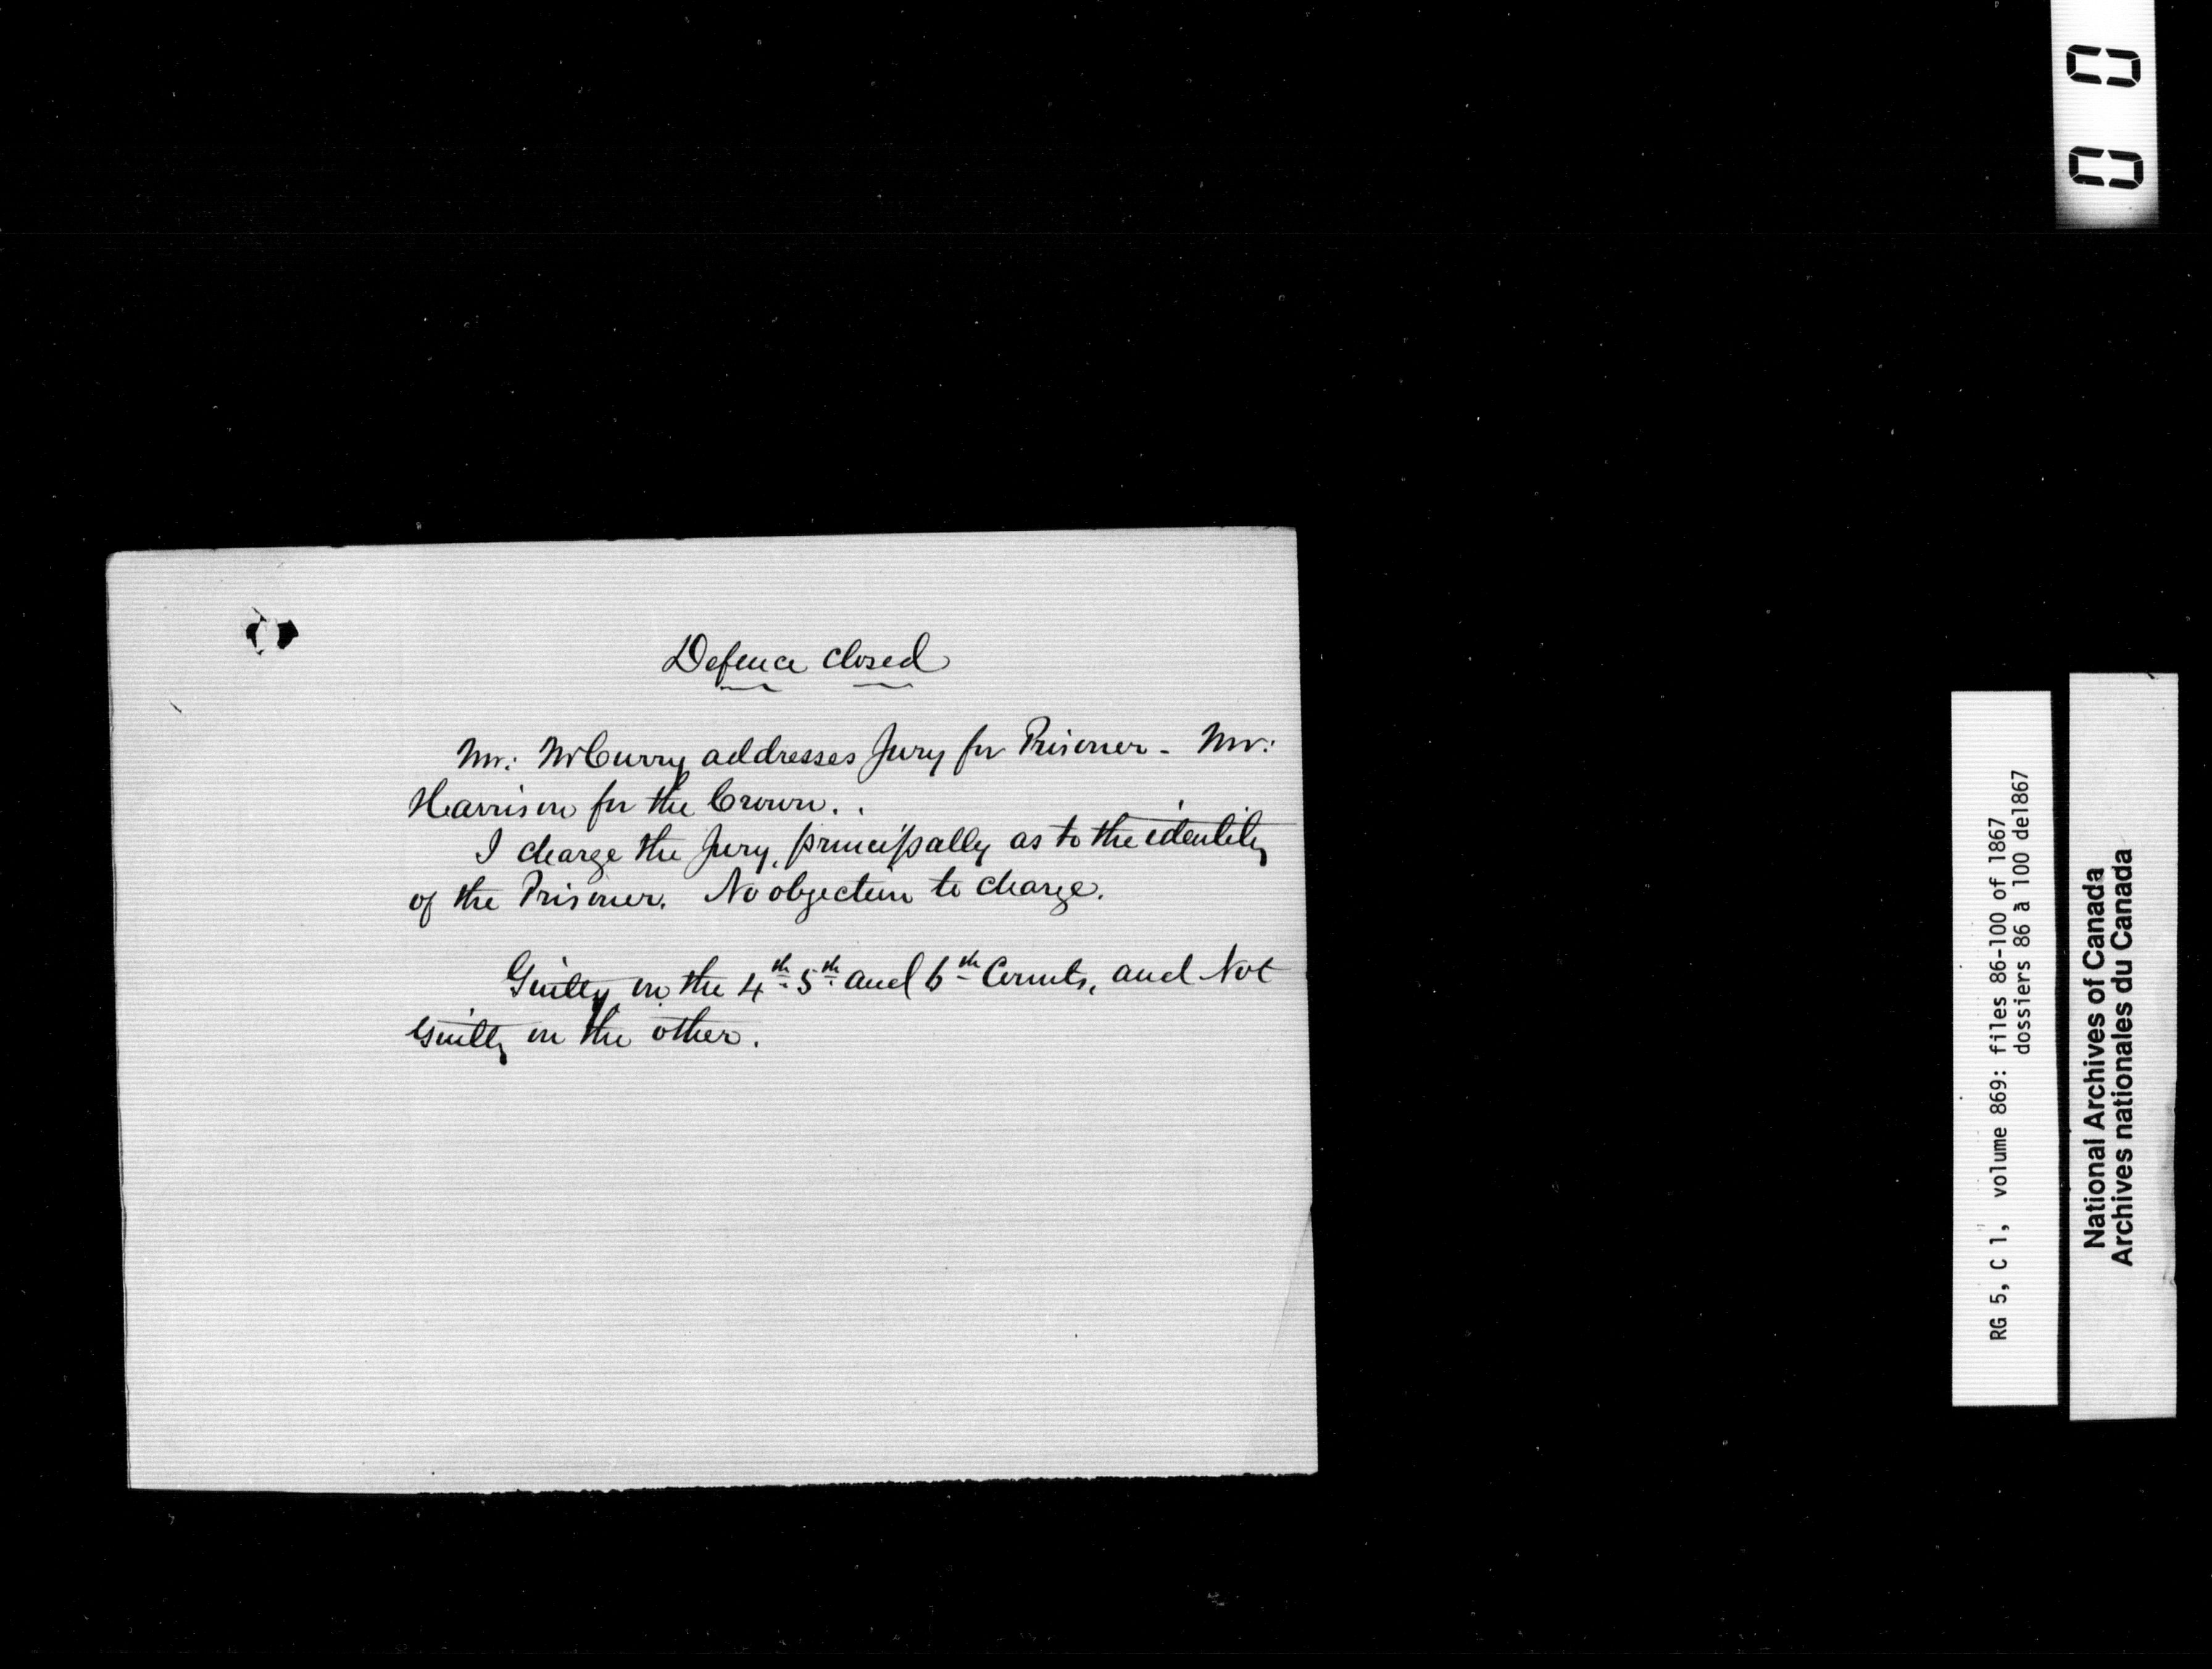 Defence closed
Mr: McCurry addresses Jury for Prisoner - Mr:
Harrison for the Crown.
I charge the Jury, principally as to the identity
of the Prisoner. No objection to charge.
Guilty on the 4th 5th and 6th Counts, and Not
Guilty on the other.
00
RG 5, C 1, volume 869: files 86-100 of 1867
dossiers 86 à 100 de1867
National Archives of Canada
Archives nationales du Canada